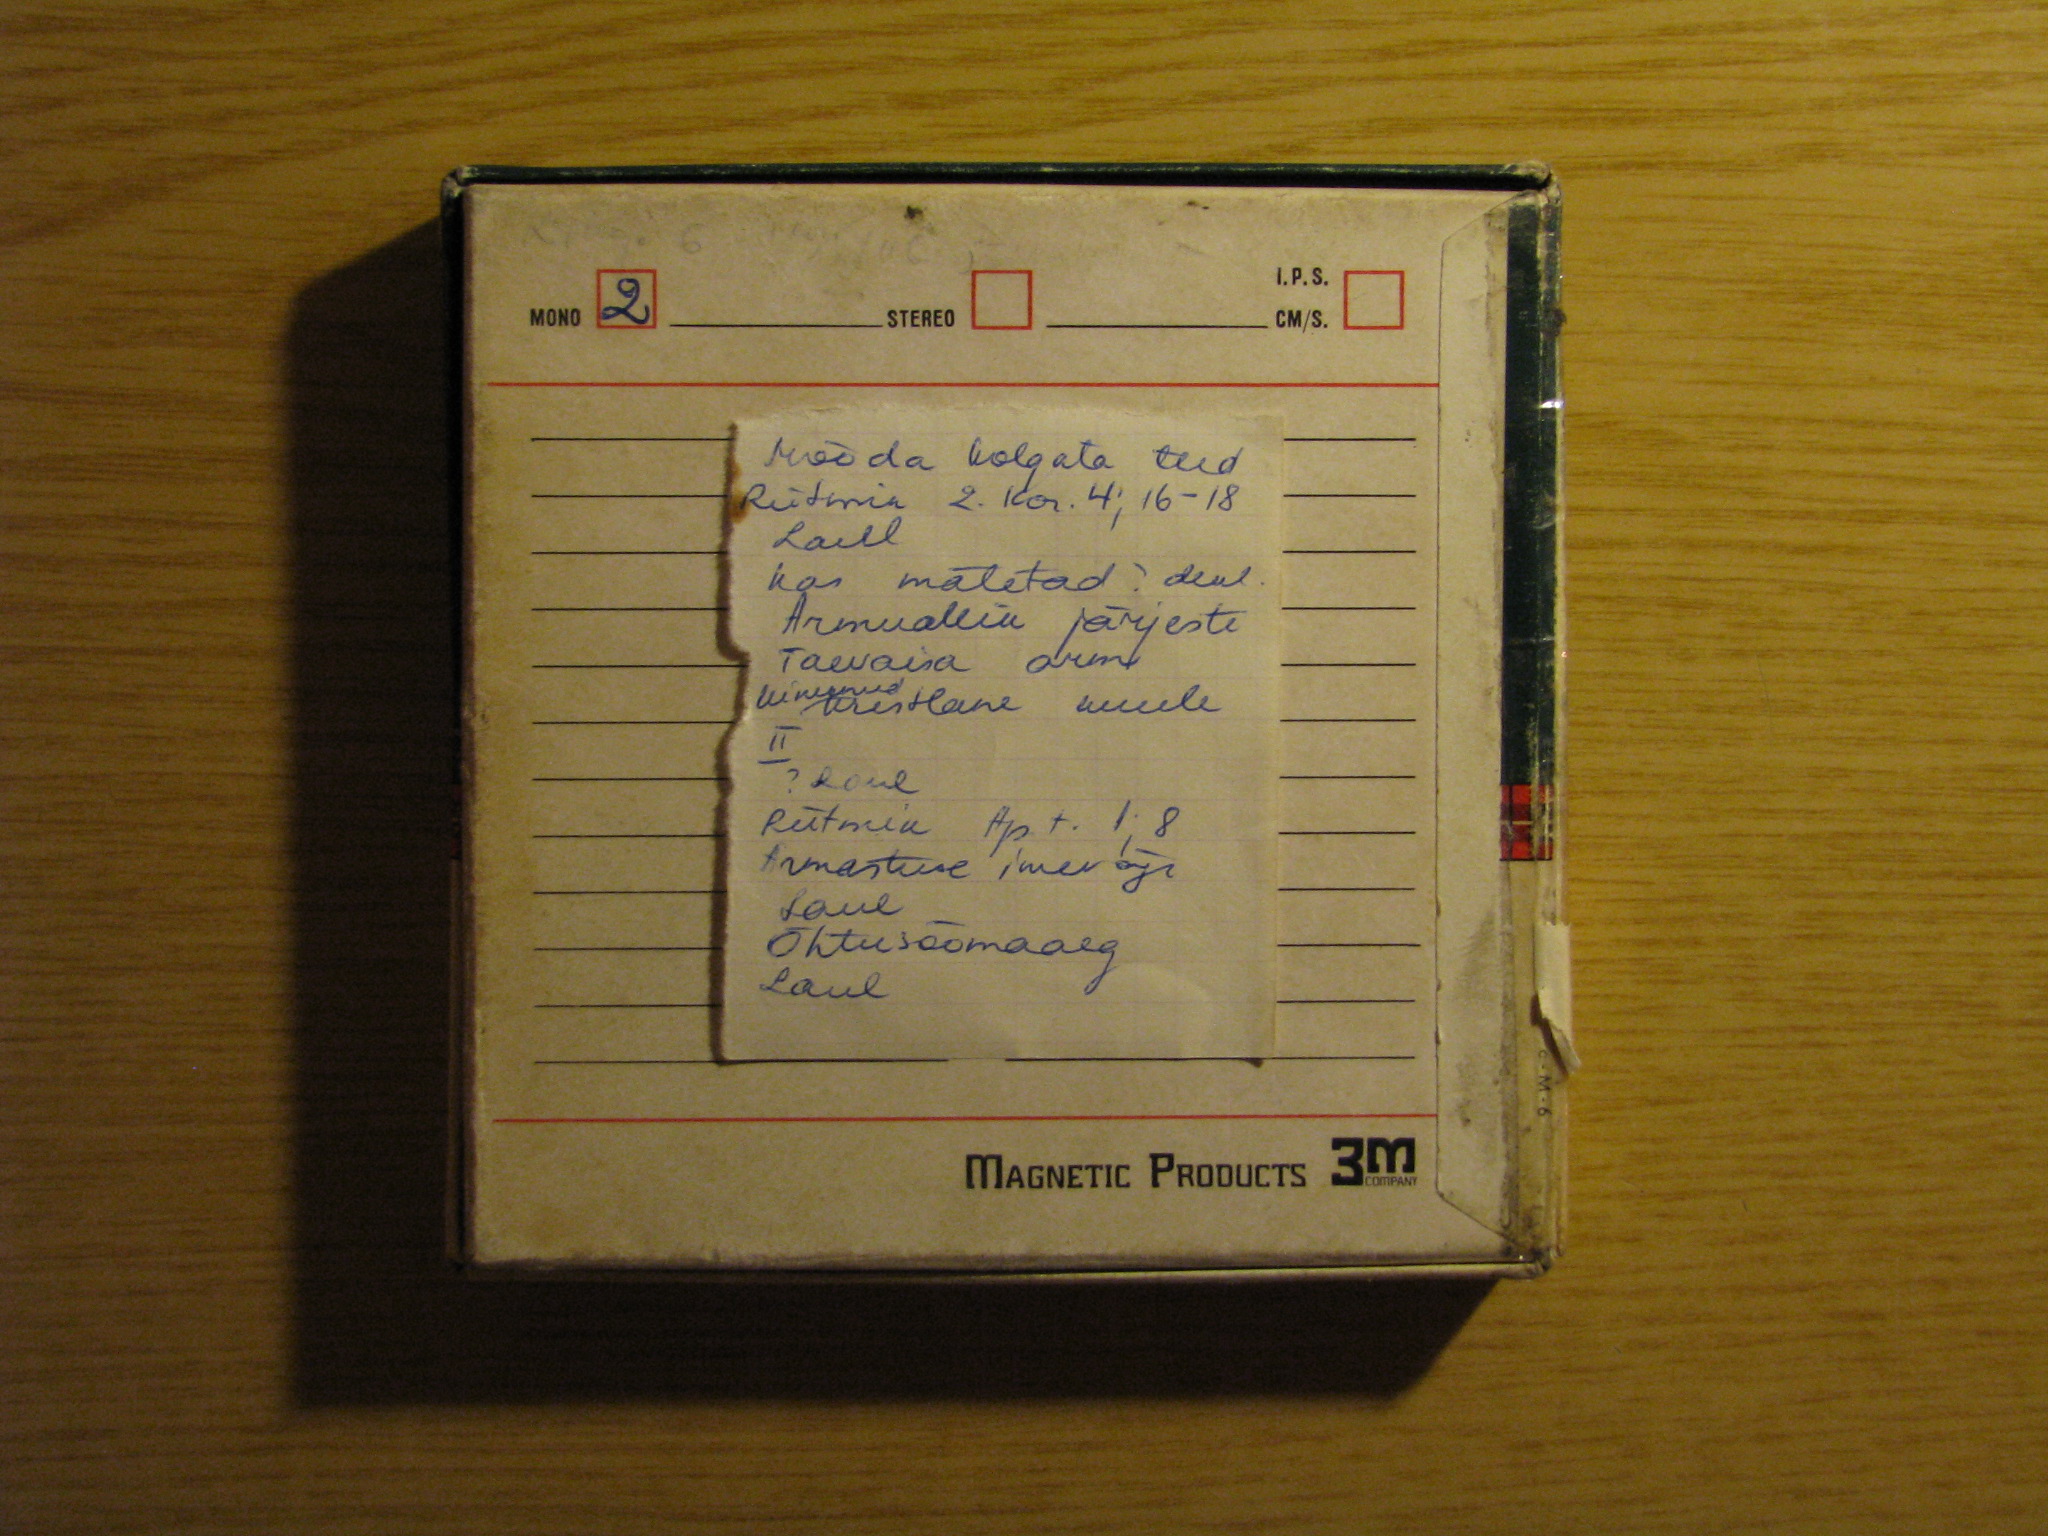 MONO 2 STEREO I.P.S. CM/S.
Mööda Kolgata teed
Rütmik 2. Kor. 4; 16-18
Laul
Kas mäletad? dekl.
Armuallik järjeste
Taevaisa arm
kristlane kuule
II
? Laul
Rütmik Ap. t. 1; 8
Armastuse imevägi
Laul
Õhtusöömaaeg
Laul
MAGNETIC PRODUCTS 3M COMPANY
C-M-6